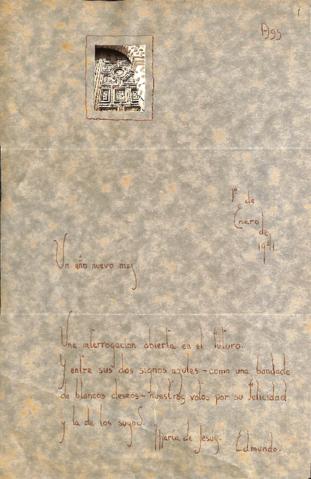 1º de
Enero
de
1931.
Un año nuevo mas
Una interrogacion abierta en el futuro.
Y entre sus dos signos azules - como una bandada
de blancos deseos - nuestros votos por su felicidad
y la de los suyos.
Maria de Jesus. Edmundo.